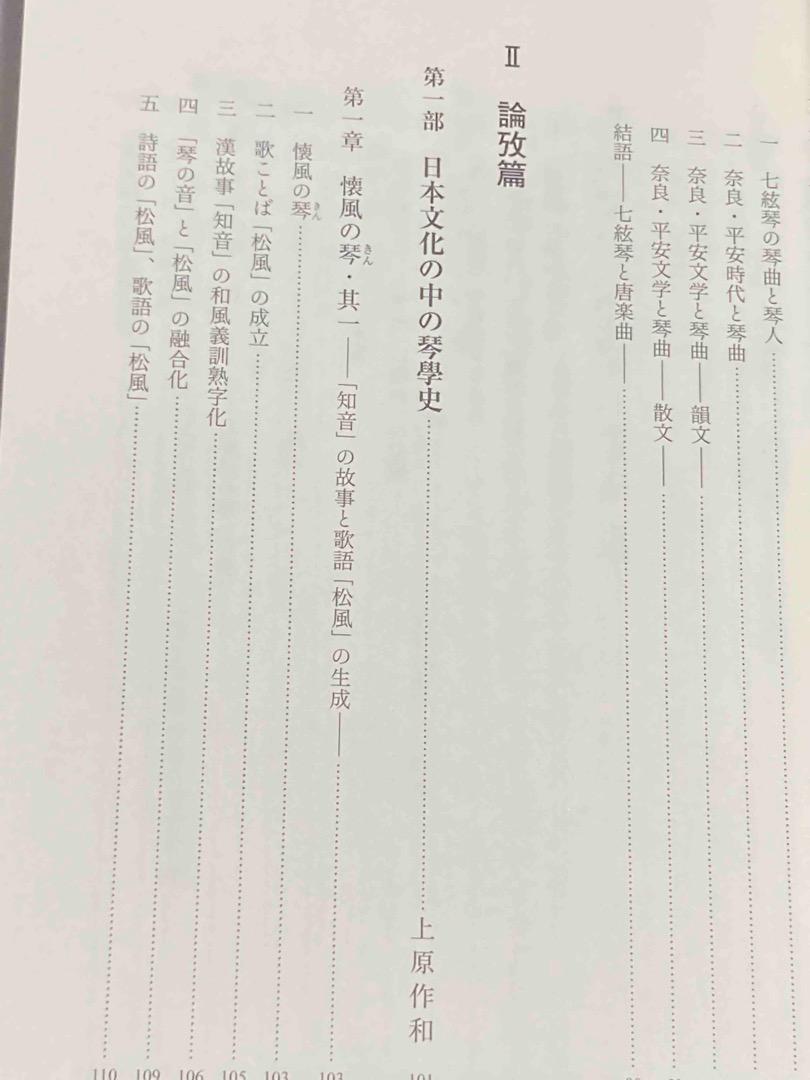 一　七絃琴の琴曲と琴人
二　奈良・平安時代と琴曲
三　奈良・平安文学と琴曲――韻文――
四　奈良・平安文学と琴曲――散文――
結語――七絃琴と唐楽曲――
Ⅱ　論攷篇
第一部　日本文化の中の琴學史 上原作和 101
第一章　懐風の琴きん・其一――「知音」の故事と歌語「松風」の生成―― 103
一　懐風の琴きん 103
二　歌ことば「松風」の成立 105
三　漢故事「知音」の和風義訓熟字化 106
四　「琴の音」と「松風」の融合化 109
五　詩語の「松風」、歌語の「松風」 110